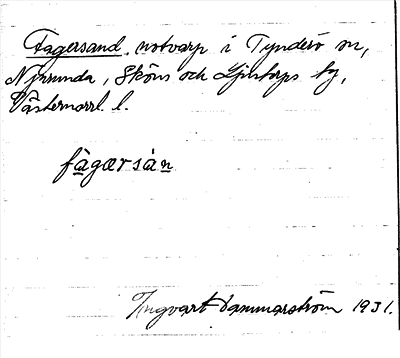 Fagersand, notvarp i Tynderö sn,
Njurunda, Sköns och Ljustorps tg,
Västernorrl. l.
fàgærsàn
Ingvart Dammarström 1931.